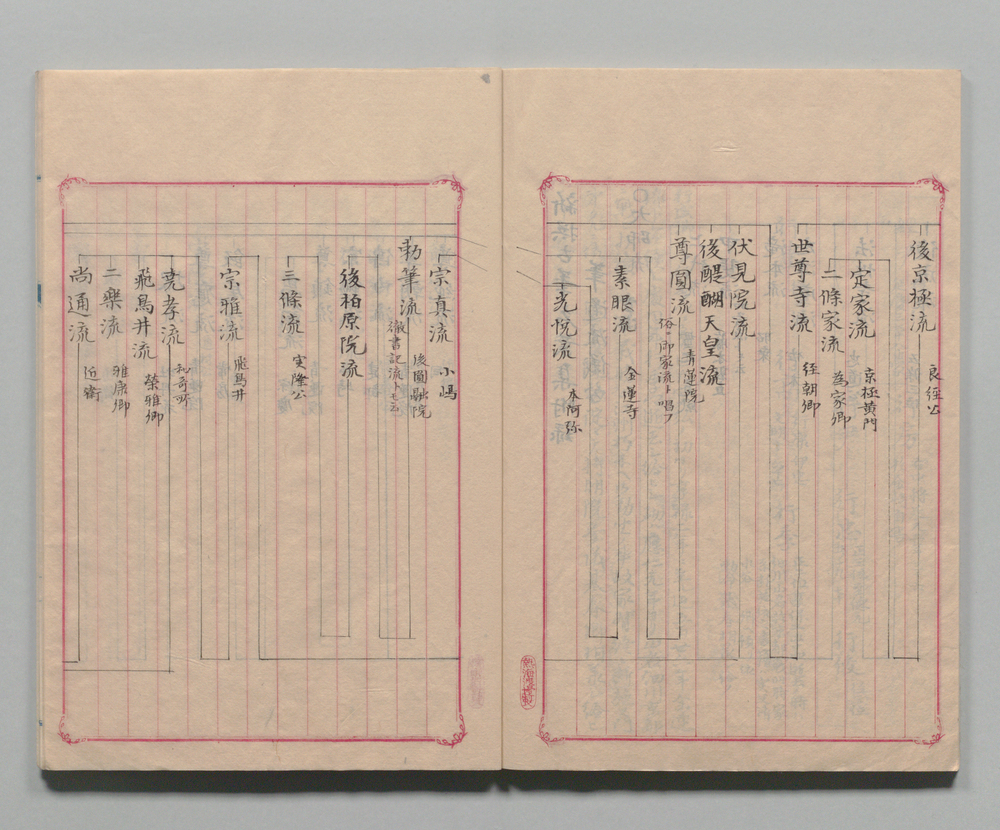 後京極流
良経公
定家流
京極黄門
二條家流
為家卿
世尊寺流
経朝卿
伏見院流
後醍醐天皇流
尊圓流
青蓮院
俗ニ御家流ト唱フ
素眼流
金蓮寺
光悦流
本阿弥
宗真流
小嶋
勅筆流
後圓融院
徹書記流トモ云
後柏原院流
三條流
実隆公
宗雅流
飛鳥井
尭孝流
和哥所
飛鳥井流
榮雅卿
二樂流
雅康卿
尚通流
近衛